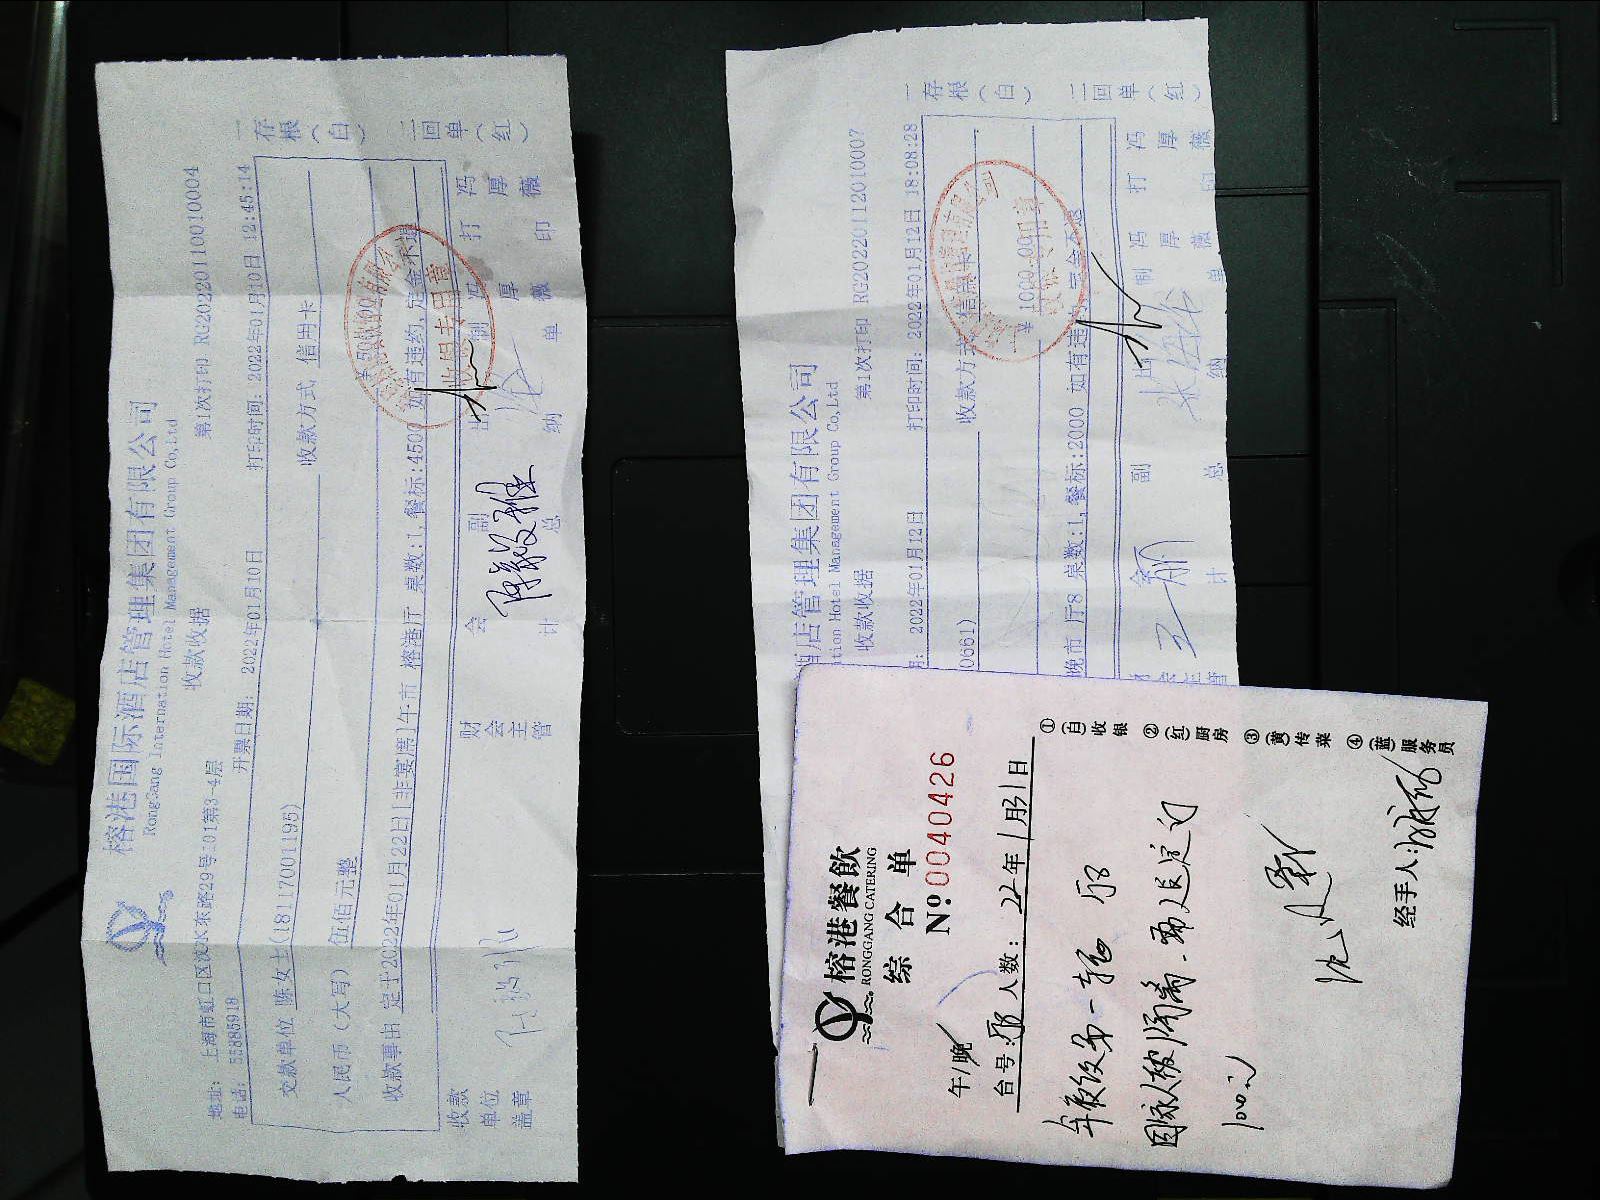 榕港国际酒店管理集团有限公司
RongGang Internation Hotel Management Group Co,Ltd
收款收据
第1次打印 RG20220110010004
地址: 上海市虹口区汶水东路29号101第3-4层
电话: 55885918
开票日期: 2022年01月10日
打印时间: 2022年01月10日 12:45:14
交款单位 陈女士(18117001195)
收款方式 信用卡
人民币(大写) 伍佰元整
收款事由 定于2022年01月22日[非宴席]午市 榕港厅 桌数:1,餐标:4500 如有违约,定金不退
收款单位盖章
财会主管
会计
副总
出纳
制单
冯厚薇
打印
冯厚薇
一存根(白)
二回单(红)
酒店管理集团有限公司
tion Hotel Management Group Co,Ltd
收款收据
第1次打印 RG20220112010007
期: 2022年01月12日
打印时间: 2022年01月12日 18:08:28
0661)
收款方式 信用卡
¥ 1000.00
晚市 厅8 桌数:1,餐标:2000 如有违约,定金不退
会计
副总
出纳
制单
冯厚薇
打印
冯厚薇
一存根(白)
二回单(红)
榕港餐飲
RONGGANG CATERING
综合单
No.0040426
午/晚
台号: 厅8 人数: 22年1月31日
年夜饭第一轮 厅8
因家人被隔离.需退定门
1000元
经手人:
①(白)收银
②(红)厨房
③(黄)传菜
④(蓝)服务员